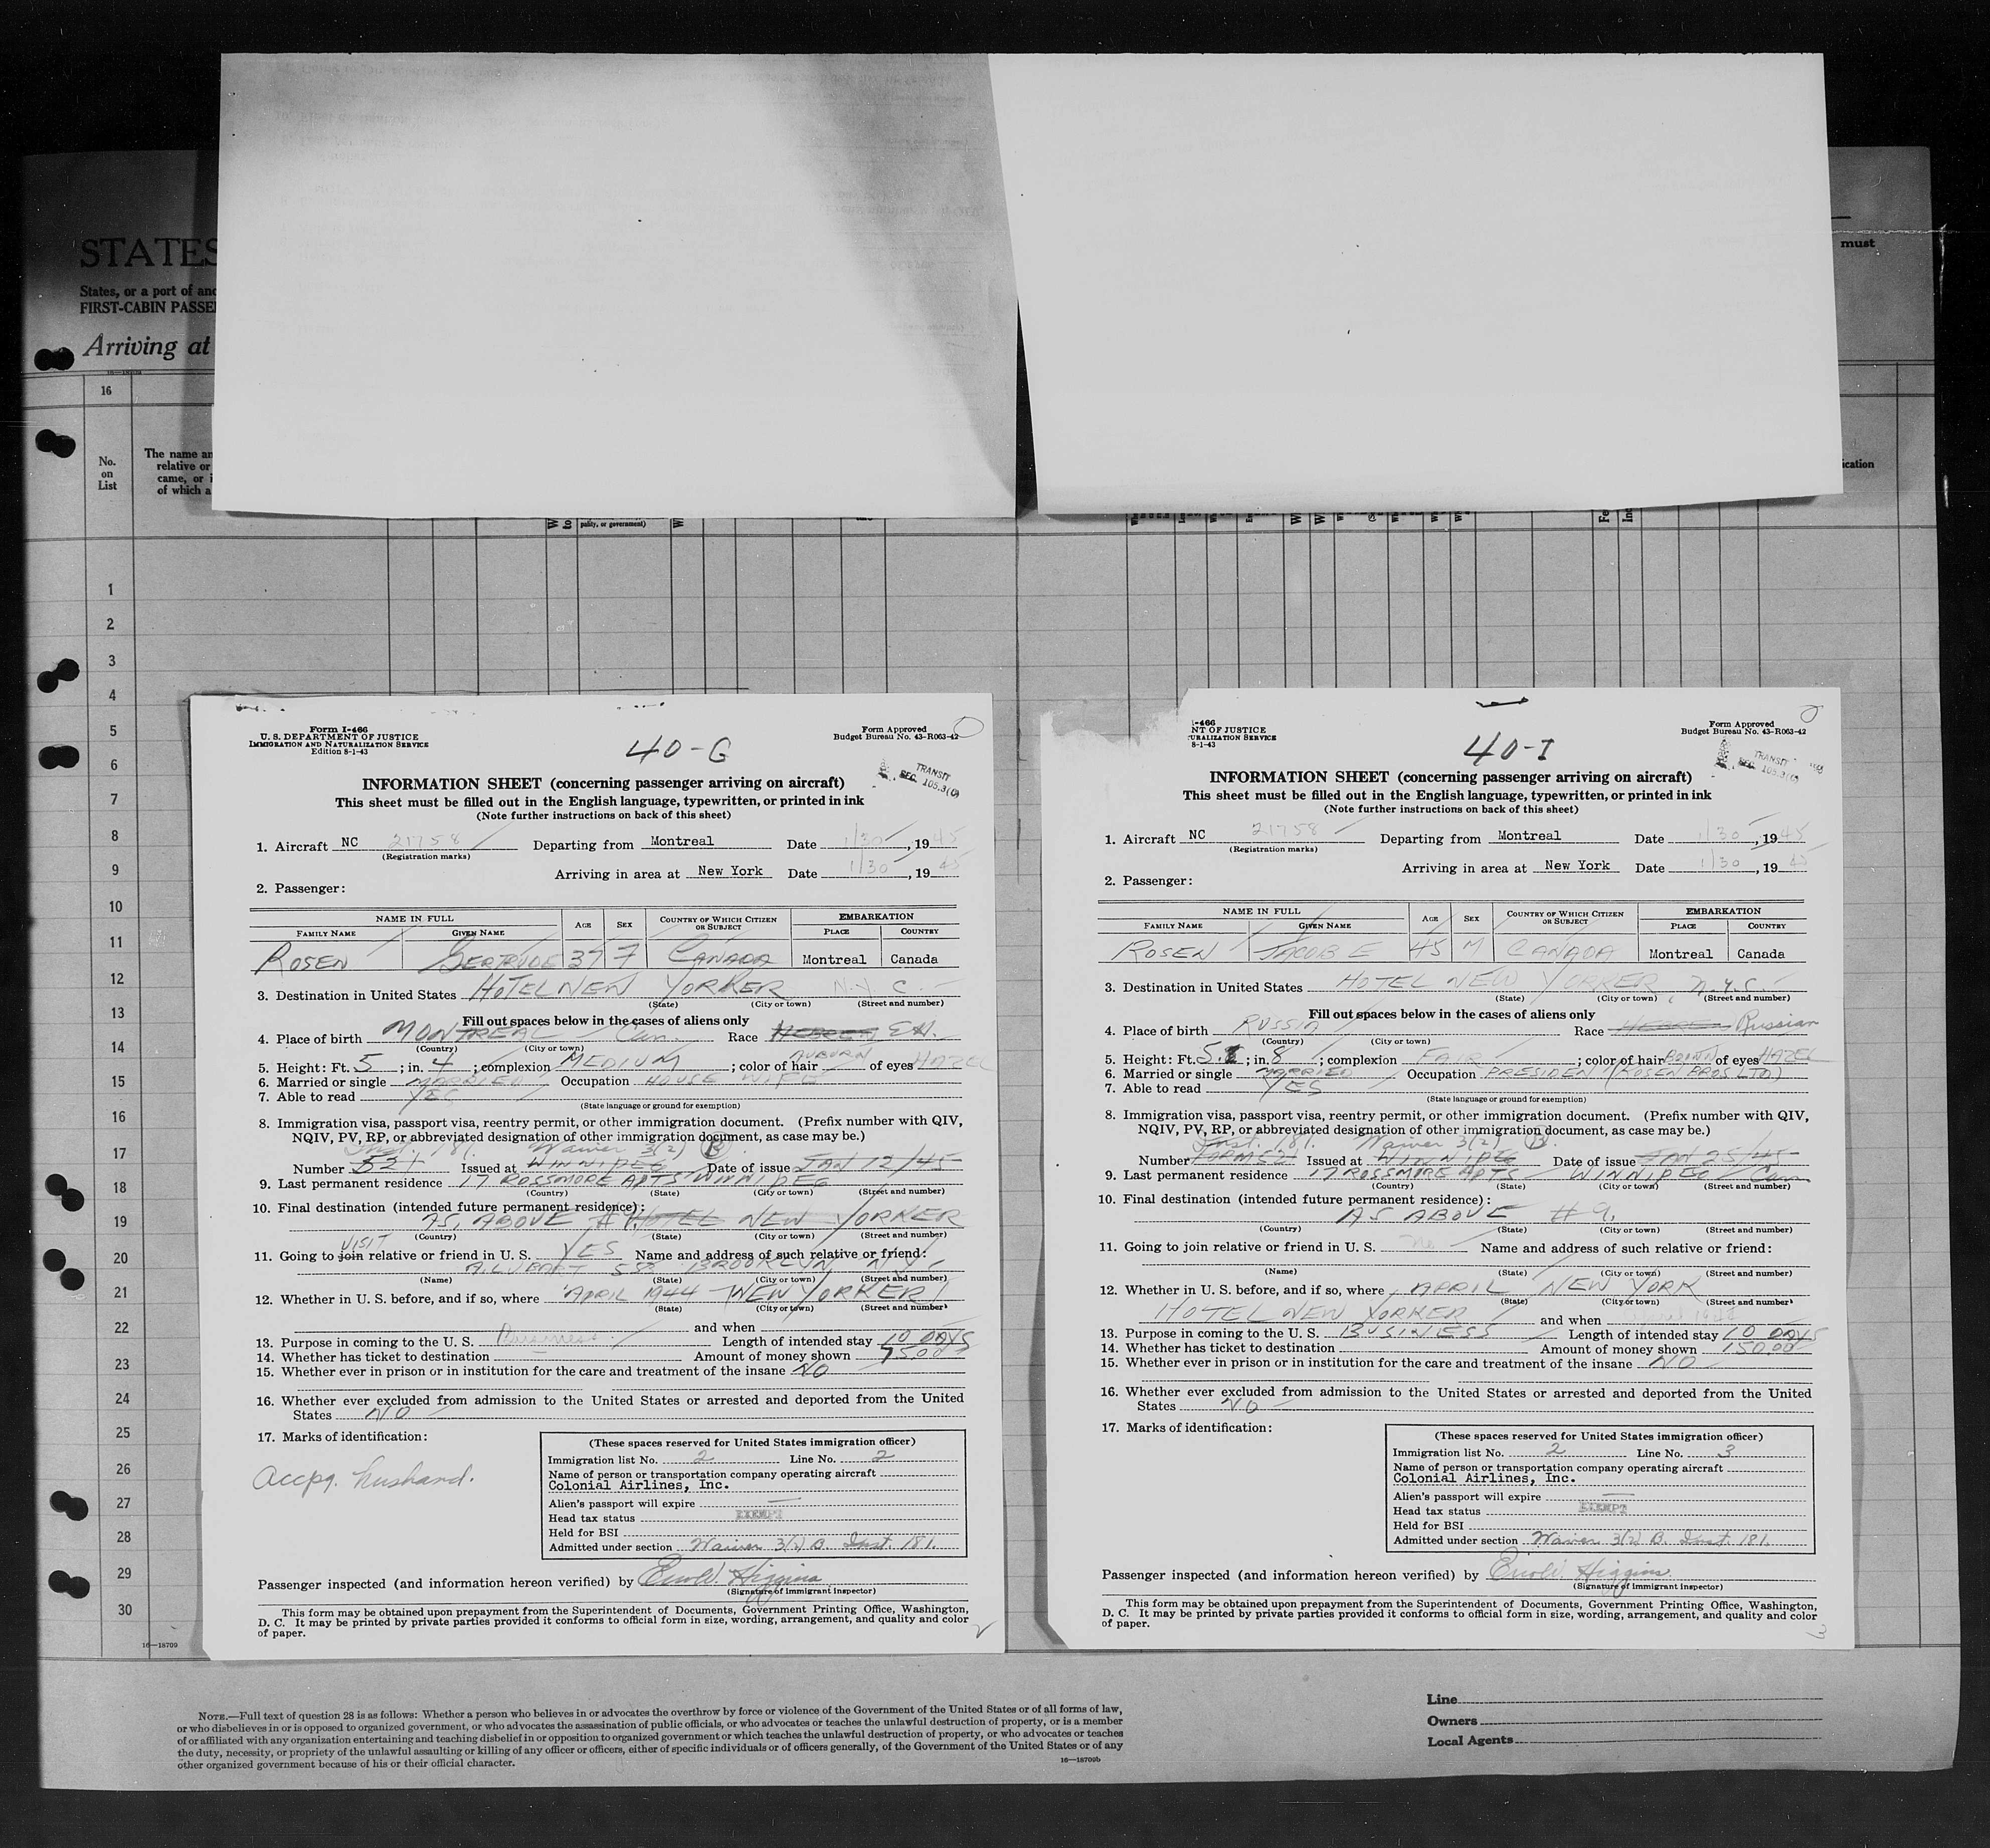 STATES
States, or a port of
FIRST-CABIN
Arriving at
must
16
No.
on
List
The name
relative or
came, or
of which a
pality, or government)
1
2
3
4
5
6
7
8
9
10
11
12
13
14
15
16
17
18
19
20
21
22
23
24
25
26
27
28
29
30
16—18709
Form I-466
U. S. DEPARTMENT OF JUSTICE
IMMIGRATION AND NATURALIZATION SERVICE
Edition 8-1-43
40-G
Form Approved
Budget Bureau No. 43-R063-42
TRANSIT
SEC. 105.3(C)
INFORMATION SHEET (concerning passenger arriving on aircraft)
This sheet must be filled out in the English language, typewritten, or printed in ink
(Note further instructions on back of this sheet)
1. Aircraft NC 21758 Departing from Montreal Date 1/30, 1945
(Registration marks)
Arriving in area at New York Date 1/30, 1945
2. Passenger:
NAME IN FULL AGE SEX COUNTRY OF WHICH CITIZEN OR SUBJECT EMBARKATION
FAMILY NAME GIVEN NAME PLACE COUNTRY
ROSEN GERTRUDE 37 F CANADA Montreal Canada
3. Destination in United States HOTEL NEW YORKER N.Y.C.
(State) (City or town) (Street and number)
Fill out spaces below in the cases of aliens only
4. Place of birth MONTREAL Can. Race HEBREW
(Country) (City or town)
5. Height: Ft. 5; in. 4; complexion MEDIUM; color of hair AUBURN of eyes HAZEL
6. Married or single MARRIED Occupation HOUSE WIFE
7. Able to read YES
(State language or ground for exemption)
8. Immigration visa, passport visa, reentry permit, or other immigration document. (Prefix number with QIV,
NQIV, PV, RP, or abbreviated designation of other immigration document, as case may be.)
Inst. 181. Waiver 3(2) B
Number 521 Issued at WINNIPEG Date of issue JAN 12/45
9. Last permanent residence 17 ROSSMORE APTS WINNIPEG
(Country) (State) (City or town) (Street and number)
10. Final destination (intended future permanent residence):
AS ABOVE #9. HOTEL NEW YORKER
(Country) (State) (City or town) (Street and number)
VISIT
11. Going to join relative or friend in U. S. YES Name and address of such relative or friend:
BROOKLYN NYC
(Name) (State) (City or town) (Street and number)
12. Whether in U. S. before, and if so, where APRIL 1944 NEW YORKER
(State) (City or town) (Street and number)
and when
13. Purpose in coming to the U. S. Business Length of intended stay 10 DAYS
14. Whether has ticket to destination Amount of money shown 75.00
15. Whether ever in prison or in institution for the care and treatment of the insane NO
16. Whether ever excluded from admission to the United States or arrested and deported from the United
States NO
17. Marks of identification:
Accpg. husband.
(These spaces reserved for United States immigration officer)
Immigration list No. 2 Line No. 2
Name of person or transportation company operating aircraft
Colonial Airlines, Inc.
Alien's passport will expire —
Head tax status EXEMPT
Held for BSI
Admitted under section Waiver 3(2) B. Inst. 181.
Passenger inspected (and information hereon verified) by Higgins
(Signature of immigrant inspector)
This form may be obtained upon prepayment from the Superintendent of Documents, Government Printing Office, Washington,
D. C. It may be printed by private parties provided it conforms to official form in size, wording, arrangement, and quality and color
of paper.
2
I-466
NT OF JUSTICE
URALIZATION SERVICE
8-1-43
40-I
Form Approved
Budget Bureau No. 43-R063-42
TRANSIT
SEC. 105.3(C)
INFORMATION SHEET (concerning passenger arriving on aircraft)
This sheet must be filled out in the English language, typewritten, or printed in ink
(Note further instructions on back of this sheet)
1. Aircraft NC 21758 Departing from Montreal Date 1/30, 1945
(Registration marks)
Arriving in area at New York Date 1/30, 1945
2. Passenger:
NAME IN FULL AGE SEX COUNTRY OF WHICH CITIZEN OR SUBJECT EMBARKATION
FAMILY NAME GIVEN NAME PLACE COUNTRY
ROSEN JACOB E 45 M CANADA Montreal Canada
3. Destination in United States HOTEL NEW YORKER, N.Y.C.
(State) (City or town) (Street and number)
Fill out spaces below in the cases of aliens only
4. Place of birth RUSSIA Race HEBREW Russian
(Country) (City or town)
5. Height: Ft. 5; in. 8; complexion FAIR; color of hair BROWN of eyes HAZEL
6. Married or single MARRIED Occupation PRESIDENT (ROSEN BROS LTD)
7. Able to read YES
(State language or ground for exemption)
8. Immigration visa, passport visa, reentry permit, or other immigration document. (Prefix number with QIV,
NQIV, PV, RP, or abbreviated designation of other immigration document, as case may be.)
Inst. 181. Waiver 3(2) B.
Number FORM 521 Issued at WINNIPEG Date of issue JAN 25/45
9. Last permanent residence 17 ROSSMORE APTS WINNIPEG Can
(Country) (State) (City or town) (Street and number)
10. Final destination (intended future permanent residence):
AS ABOVE #9.
(Country) (State) (City or town) (Street and number)
11. Going to join relative or friend in U. S. No Name and address of such relative or friend:
(Name) (State) (City or town) (Street and number)
12. Whether in U. S. before, and if so, where APRIL NEW YORK
(State) (City or town) (Street and number)
HOTEL NEW YORKER and when April 1944
13. Purpose in coming to the U. S. BUSINESS Length of intended stay 10 DAYS
14. Whether has ticket to destination Amount of money shown 150.00
15. Whether ever in prison or in institution for the care and treatment of the insane NO
16. Whether ever excluded from admission to the United States or arrested and deported from the United
States NO
17. Marks of identification:
(These spaces reserved for United States immigration officer)
Immigration list No. 2 Line No. 3
Name of person or transportation company operating aircraft
Colonial Airlines, Inc.
Alien's passport will expire —
Head tax status EXEMPT
Held for BSI
Admitted under section Waiver 3(2) B. Inst. 181.
Passenger inspected (and information hereon verified) by Higgins
(Signature of immigrant inspector)
This form may be obtained upon prepayment from the Superintendent of Documents, Government Printing Office, Washington,
D. C. It may be printed by private parties provided it conforms to official form in size, wording, arrangement, and quality and color
of paper.
3
NOTE.—Full text of question 28 is as follows: Whether a person who believes in or advocates the overthrow by force or violence of the Government of the United States or of all forms of law,
or who disbelieves in or is opposed to organized government, or who advocates the assassination of public officials, or who advocates or teaches the unlawful destruction of property, or is a member
of or affiliated with any organization entertaining and teaching disbelief in or opposition to organized government or which teaches the unlawful destruction of property, or who advocates or teaches
the duty, necessity, or propriety of the unlawful assaulting or killing of any officer or officers, either of specific individuals or of officers generally, of the Government of the United States or of any
other organized government because of his or their official character.
16—18709b
Line
Owners
Local Agents